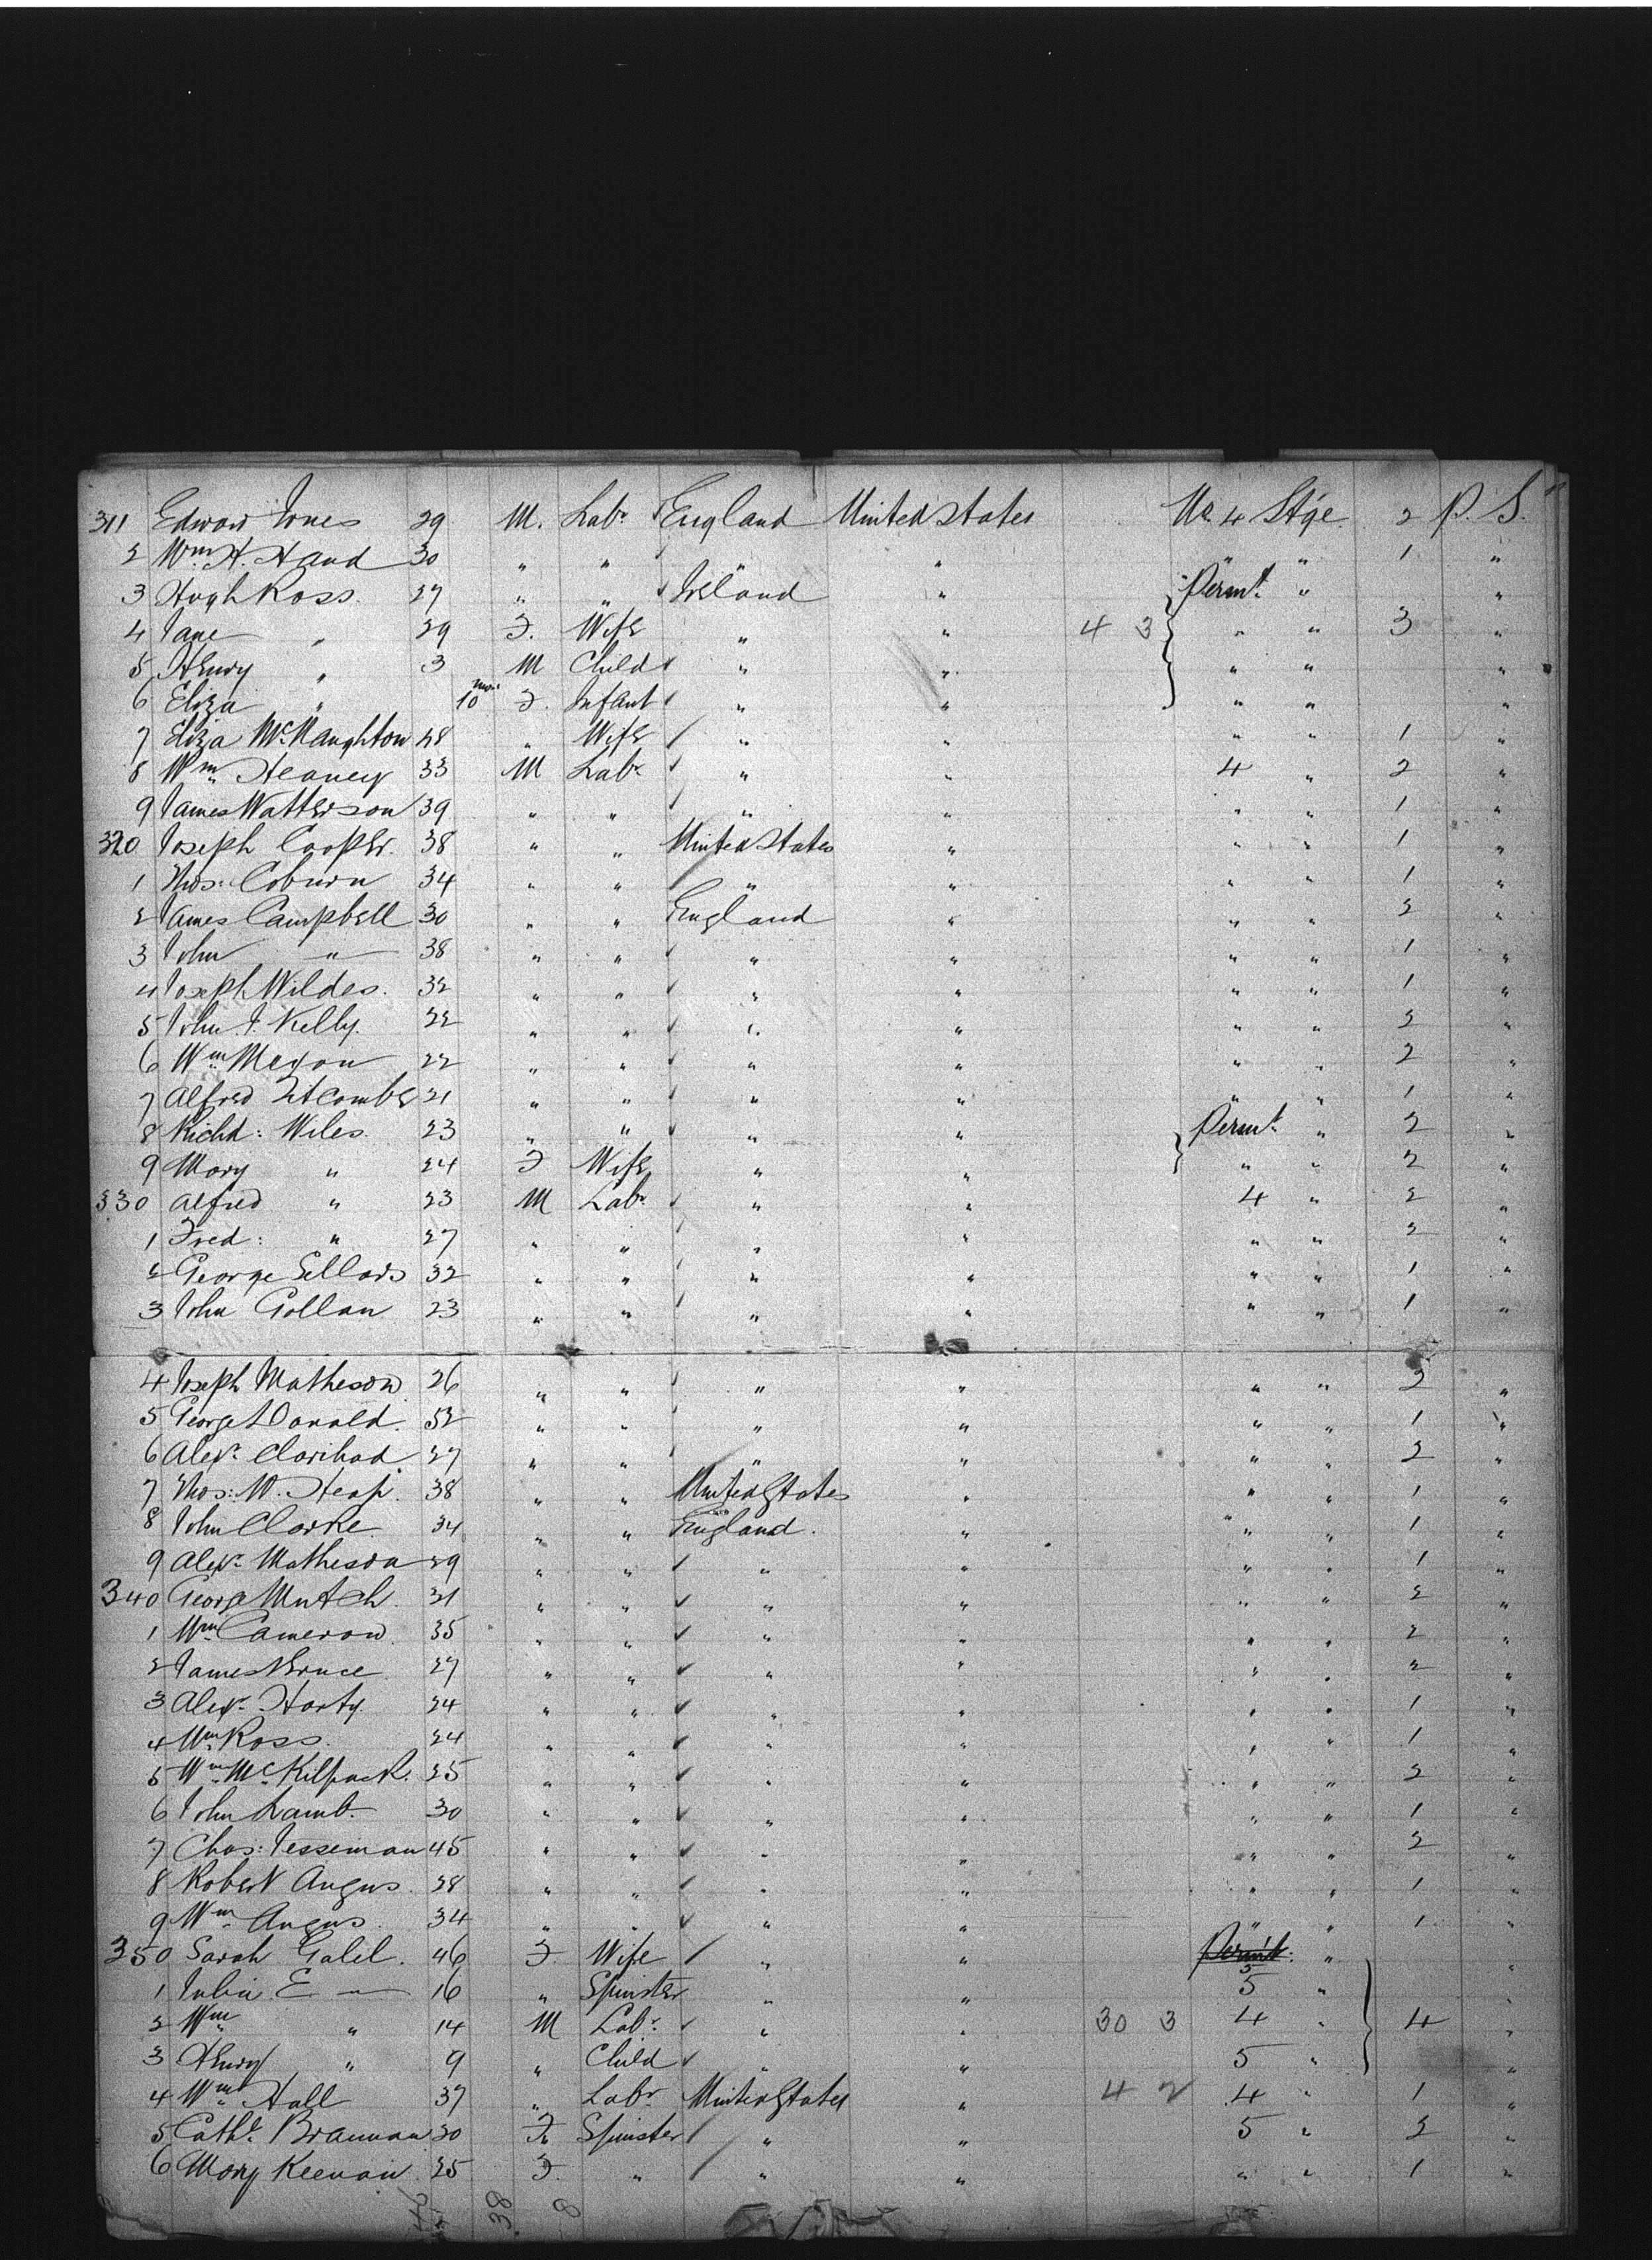 311 Edward Jones 29 M. Labr England United States No. 4 Stge. 2 P. S.
2 Wm. H. Hand 30 " " " " " " 1 "
3 Hugh Ross. 27 " " Ireland " Permt. " "
4 Jane " 29 F. Wife " " 4 3 " " 3 "
5 Henry " 3 M Child " " " " "
6 Eliza " 10 mos. F. Infant " " " " "
7 Eliza McNaughton 48 " Wife " " " " 1 "
8 Wm. Heaney 33 M Labr " " 4 " 2 "
9 James Watterson 39 " " " " " " 1 "
320 Joseph Cooper. 38 " " United States " " " 1 "
1 Thos: Coburn 34 " " " " " " 1 "
2 James Campbell 30 " " England " " " 2 "
3 John " 38 " " " " " " 1 "
4 Joseph Wildes. 32 " " " " " " 1 "
5 John J. Kelly. 22 " " " " " " 2 "
6 Wm. 22 " " " " " " 2 "
7 Alfred 21 " " " " " " 1 "
8 Richd: Wiles. 23 " " " " Permt. " 2 "
9 Mary " 24 F Wife " " " " 2 "
330 Alfred " 23 M Labr " " 4 " 2 "
1 Fred: " 27 " " " " " " 2 "
2 George Sellars 32 " " " " " " 1 "
3 John Gollan 23 " " " " " " 1 "
4 Joseph Matheson 26 " " " " " " 2 "
5 George Donald. 52 " " " " " " 1 "
6 Alexr. 27 " " " " " " 2 "
7 Thos: W. Heap. 38 " " United States " " " 1 "
8 John Clarke 34 " " England. " " " 1 "
9 Alexr. Matheson 29 " " " " " " 1 "
340 George Mutch. 21 " " " " " " 2 "
1 Wm. Cameron 35 " " " " " " 2 "
2 James Bruce 27 " " " " " " 2 "
3 Alexr. Harty 24 " " " " " " 1 "
4 Wm. Ross. 24 " " " " " " 1 "
5 Wm. McKilpack. 25 " " " " " " 2 "
6 John Lamb. 30 " " " " " " 1 "
7 Chas: Jesseman 45 " " " " " " 2 "
8 Robert Angus. 28 " " " " " " 1 "
9 Wm. Angus. 34 " " " " " " 1 "
350 Sarah 46 F. Wife " " Permt. " "
1 Julia E — 16 " Spinster " " 5 " "
2 Wm. " 14 M Labr. " " 30 3 4 " 4 "
3 Henry " 9 " Child " " 5 " "
4 Wm. Hall 37 " Labr United States " 4 2 4 " 1 "
5 Cathe. Brannan 20 F. Spinster " " 5 " 2 "
6 Mary Keenan 25 F. " " " " " 1 "
38 8